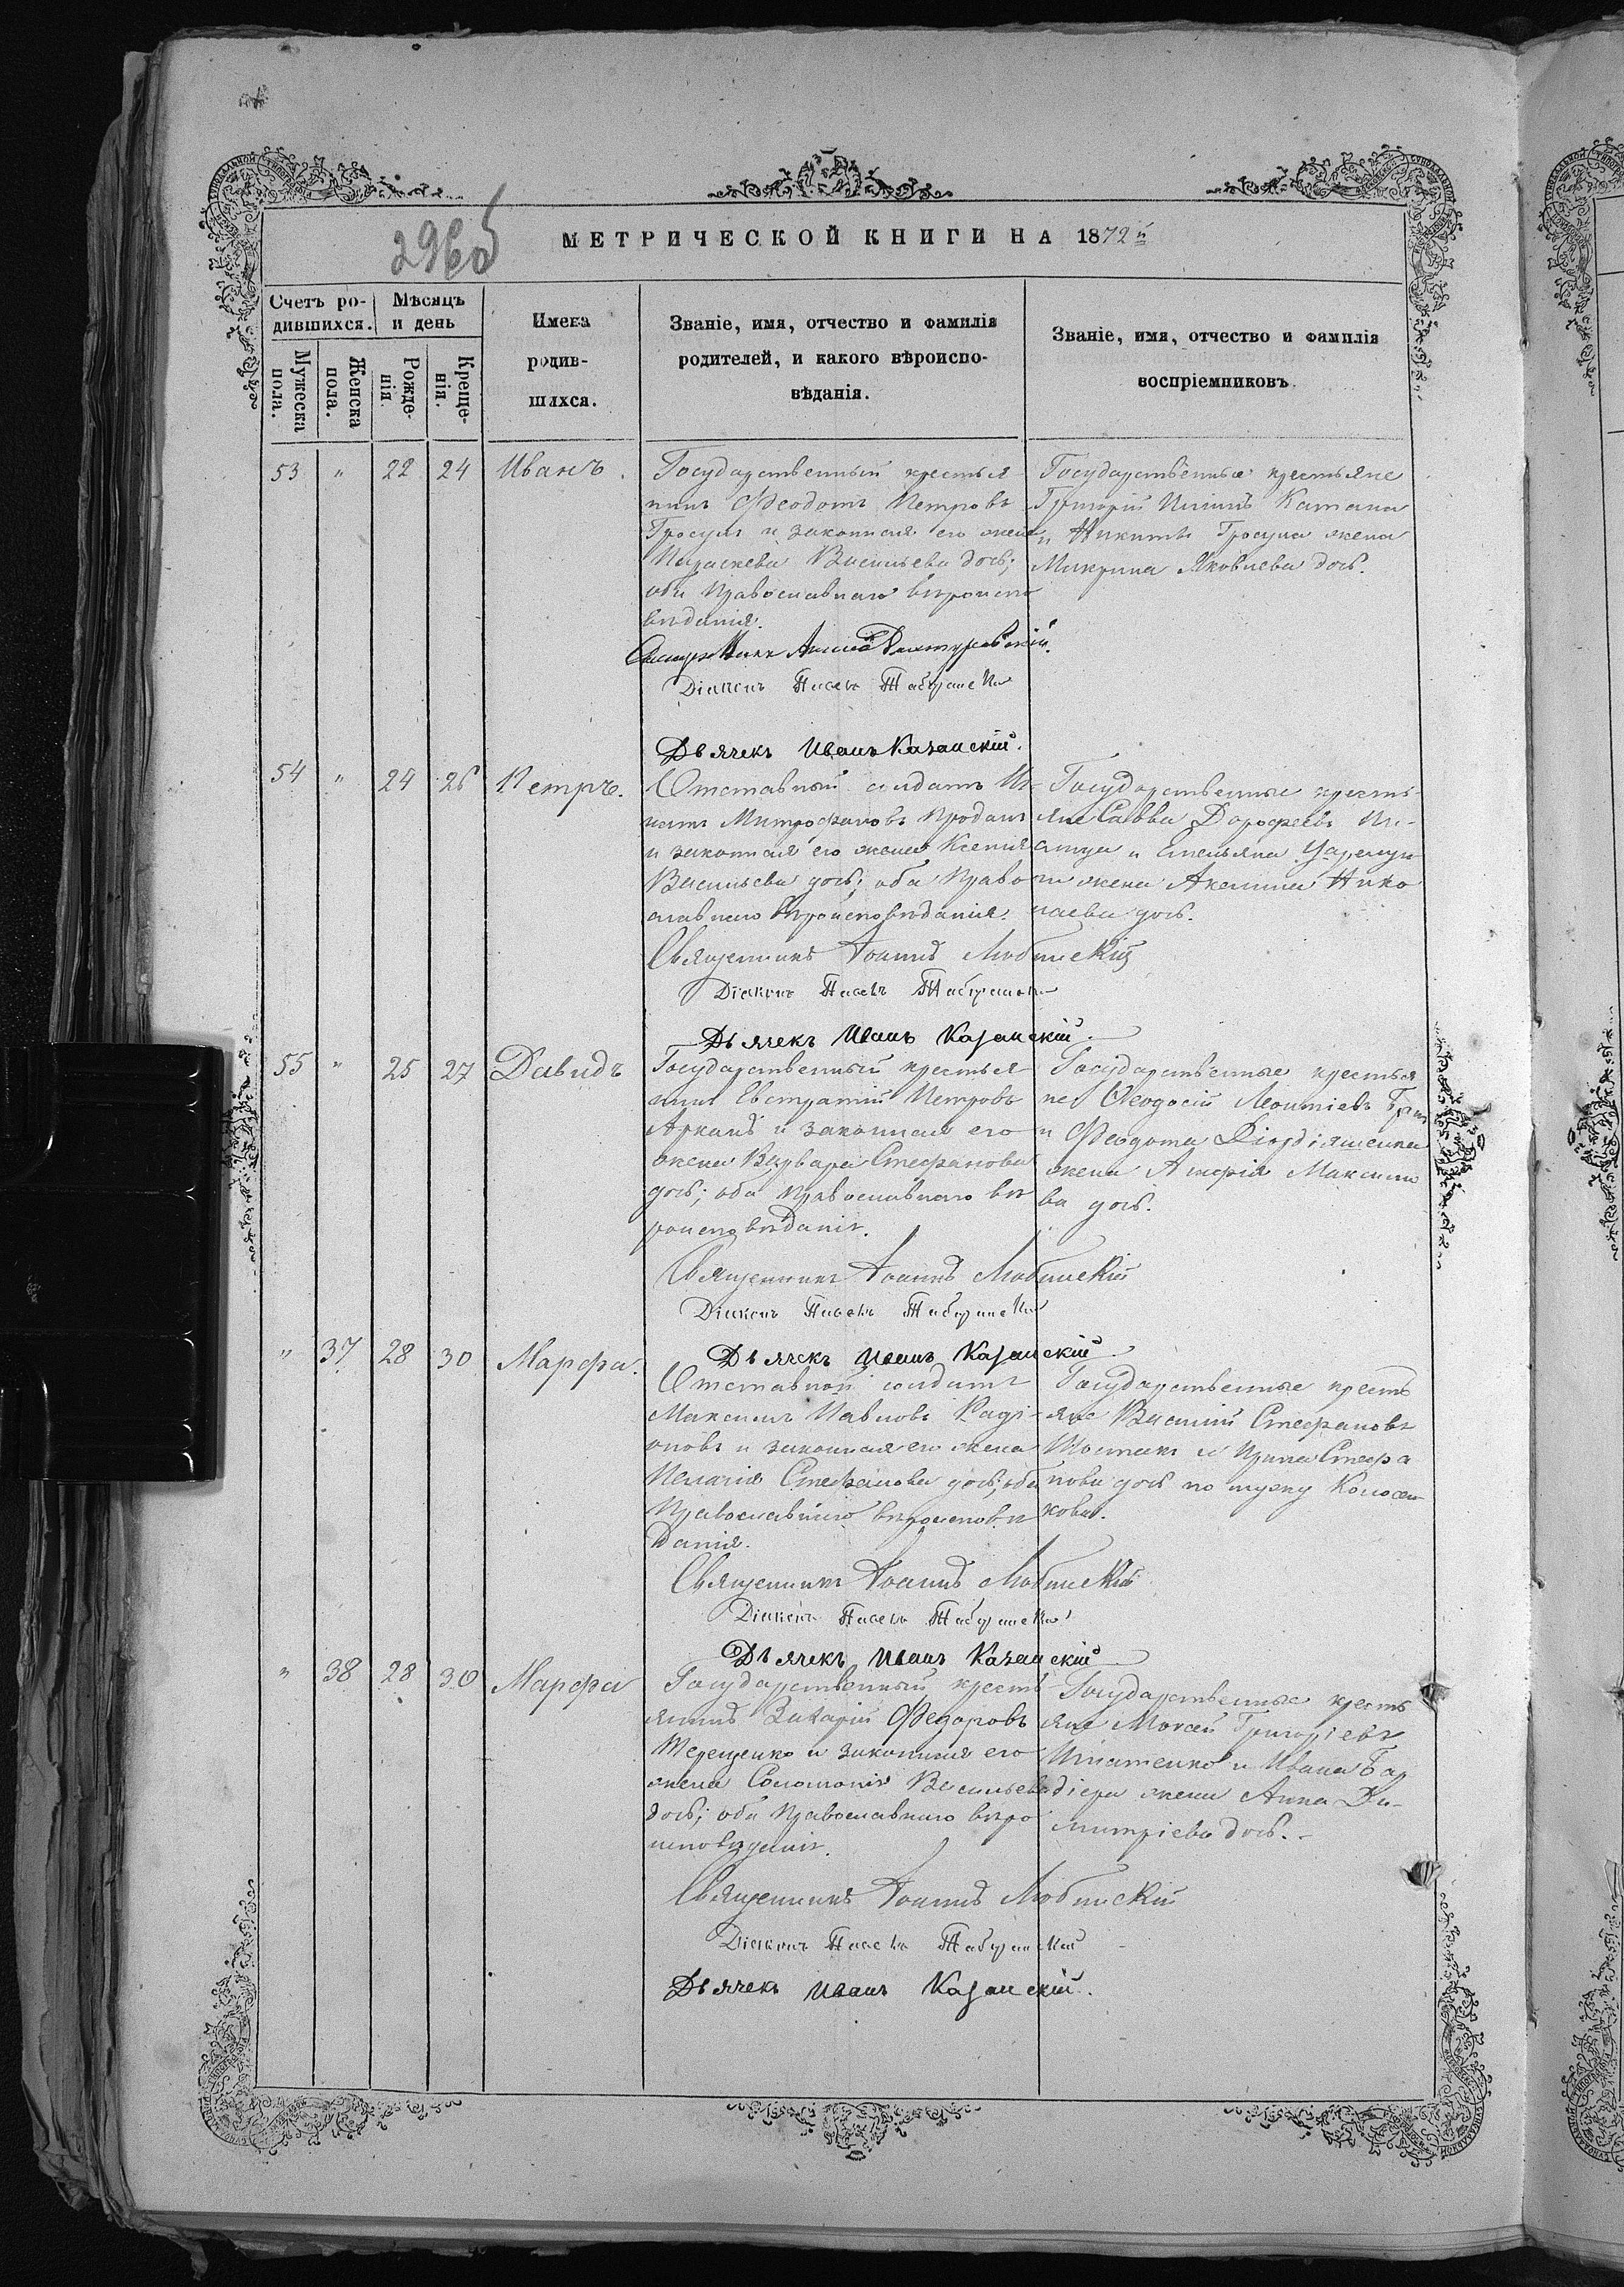 296об
МЕТРИЧЕСКОЙ КНИГИ НА 1872й
Счетъ ро-
дившихся.
Мѣсяцъ
и день
Мужеска
пола.
Женска
пола.
Рожде-
нія.
Креще-
нія.
Имена
родив-
шихся.
Званіе, имя, отчество и фамилія
родителей, и какого вѣроиспо-
вѣданія.
Званіе, имя, отчество и фамилія
воспріемниковъ.
53 " 22 24 Иванъ.
Государственный крестья
нинъ Феодотъ Петровъ
Гросулъ и законная его жена
Параскева Васильева дочь;
оба Православнаго вѣроиспо
вѣданія.
Діаконъ
Дьячекъ Иванъ Казанскій.
Государственные крестьяне
Григорій Катана
и Никиты Гросула жена
Макрина Яковлева дочь.
54 " 24 26 Петръ.
Отставный солдатъ Иг-
натъ Митрофановъ Проданъ
и законная его жена Ксенія
Васильева дочь; оба Право
славнаго вѣроисповѣданія.
Священникъ Іоаннъ
Діаконъ
Дьячекъ Иванъ Казанскій.
Государственные кресть-
яне Савва Дорофеевъ
и Емельяна
жена Акилина Нико
лаева дочь.
55 " 25 27 Давидъ
Государственный крестья
нинъ Евстратій Петровъ
и законная его
жена Варвара Стефанова
дочь; оба Православнаго вѣ
роисповѣданія.
Священникъ Іоаннъ
Діаконъ
Дьячекъ Иванъ Казанскій.
Государственные крестья
не Феодосій Леонтіевъ
и Феодота
жена Максимо
ва дочь.
" 37 28 30 Марфа.
Отставной солдатъ
Максимъ Павловъ Раді-
оновъ и законная его жена
Пелагія Стефанова дочь; оба
Православнаго вѣроисповѣ
данія.
Священникъ Іоаннъ
Діаконъ
Дьячекъ Иванъ Казанскій
Государственные кресть
яне Василій Стефановъ
и Ирина Стефа
нова дочь по мужу
" 38 28 30 Марфа
Государственный кресть
янинъ Захарій Федоровъ
Терещенко и законная его
жена Соломонія Васильева
дочь; оба Православнаго вѣро
исповѣданія.
Священникъ Іоаннъ
Діаконъ
Дьячекъ Иванъ Казанскій.
Государственные кресть
яне Моисей Григоріевъ
Игнатенко и Ивана
жена Анна Ди-
митріева дочь.